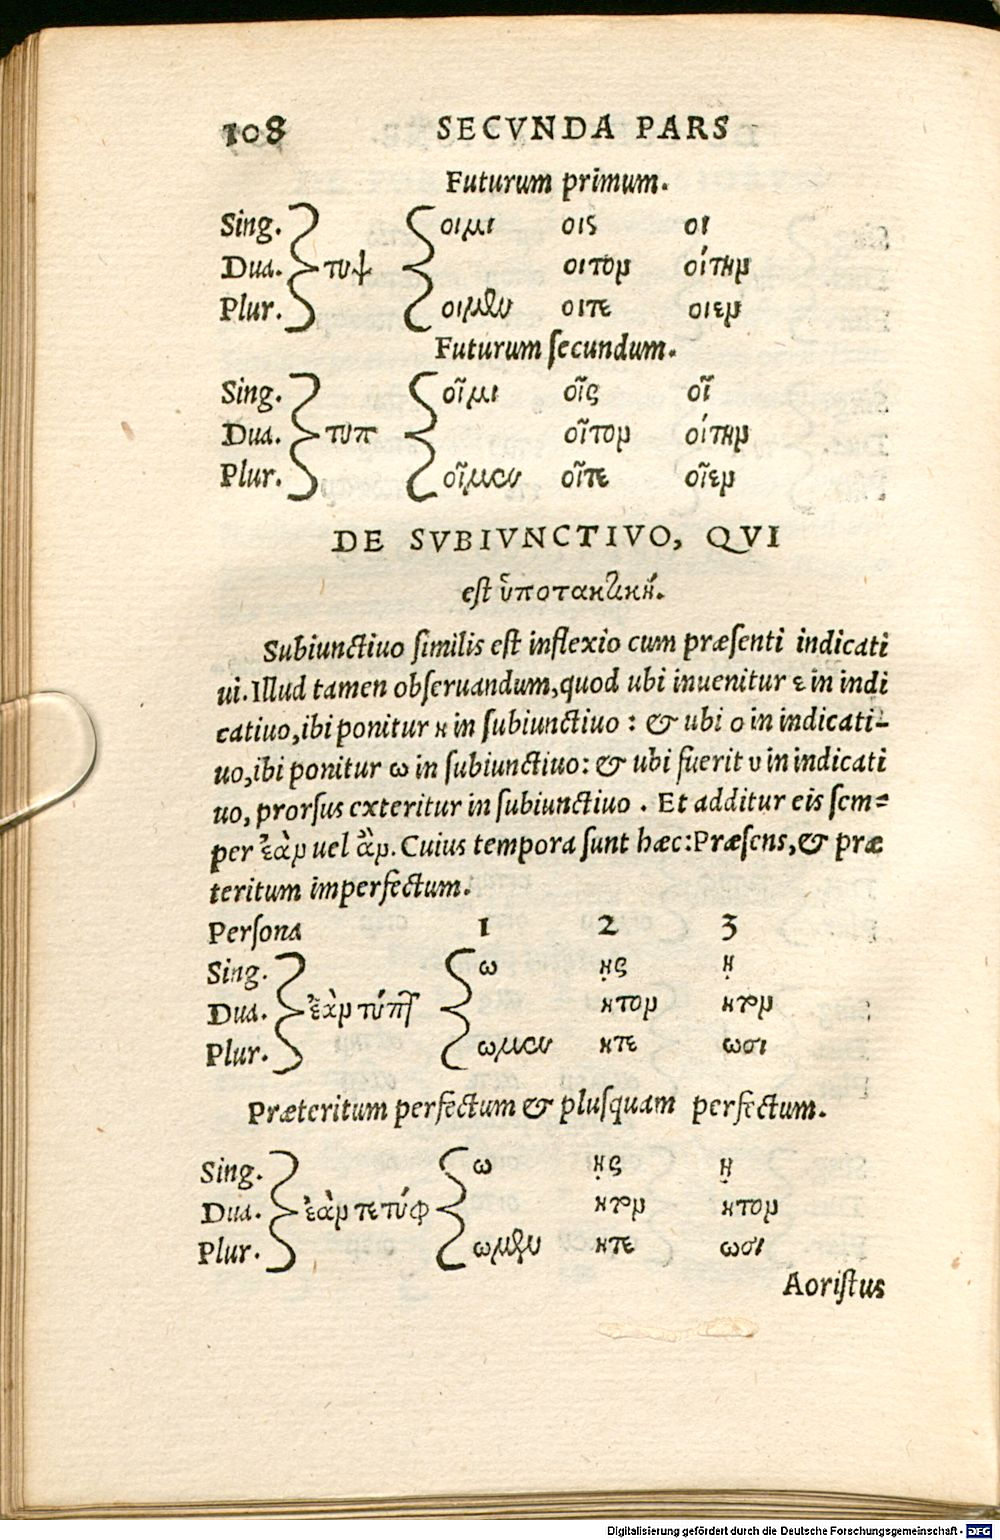 108 SECVNDA PARS
Futurum primum.
Sing. οιμι οις οι
Dua. τυψ οιτον οίτην
Plur. οιμεν οιτε οιεν
Futurum secundum.
Sing. οῖμι οῖς οῖ
Dua. τυπ οῖτον οίτην
Plur. οῖμεν οῖτε οῖεν
DE SVBIVNCTIVO, QVI
est ὑποτακτική.
Subiunctiuo similis est inflexio cum præsenti indicati
ui. Illud tamen obseruandum, quod ubi inuenitur ε in indi
catiuo, ibi ponitur η in subiunctiuo : & ubi ο in indicati-
uo, ibi ponitur ω in subiunctiuo: & ubi fuerit υ in indicati
uo, prorsus exteritur in subiunctiuo . Et additur eis sem-
per ἐὰν uel ἂν. Cuius tempora sunt hæc: Præsens, & præ
teritum imperfectum.
Persona 1 2 3
Sing. ω ῃς ῃ
Dua. ἐὰν τύπτ ητον ητον
Plur. ωμεν ητε ωσι
Præteritum perfectum & plusquam perfectum.
Sing. ω ῃς ῃ
Dua. ἐὰν τετύφ ητον ητον
Plur. ωμεν ητε ωσι
Aoristus
Digitalisierung gefördert durch die Deutsche Forschungsgemeinschaft - DFG